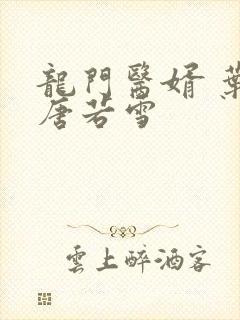 龍門醫婿 葉
唐若雪
雲上醉酒客